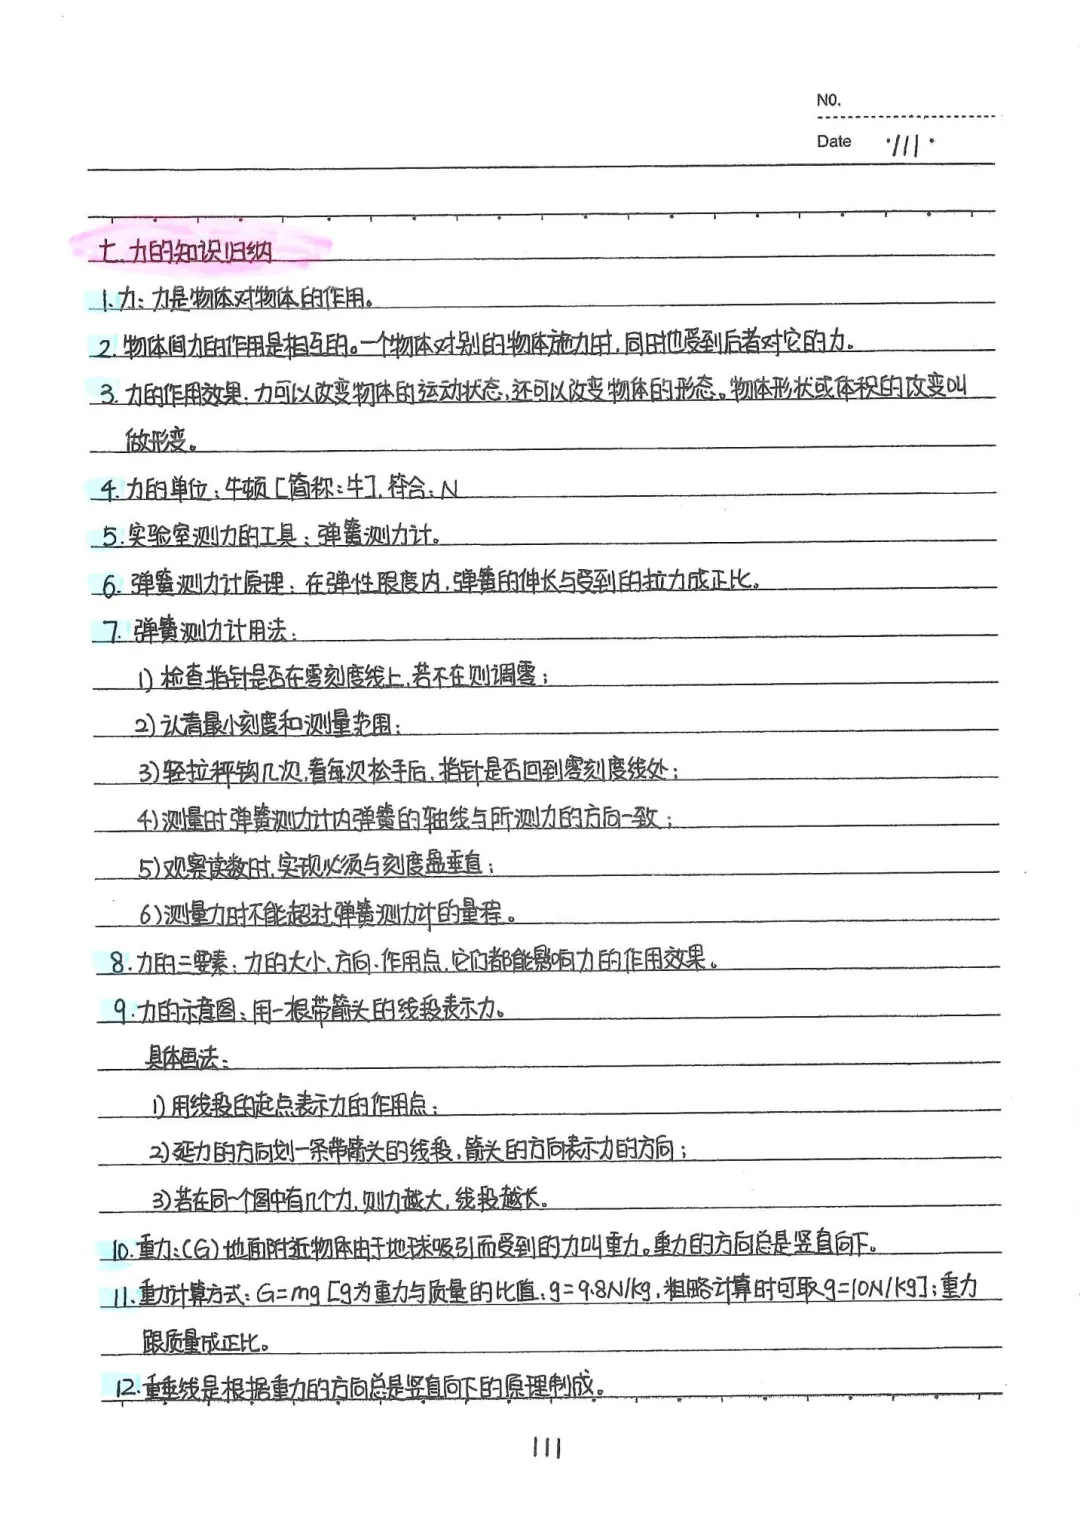 NO.
Date ·111·
七、力的知识归纳
1.力:力是物体对物体的作用。
2.物体间力的作用是相互的。一个物体对别的物体施力时,同时也受到后者对它的力。
3.力的作用效果.力可以改变物体的运动状态,还可以改变物体的形态。物体形状或体积的改变叫
做形变。
4.力的单位:牛顿[简称:牛],符合:N
5.实验室测力的工具:弹簧测力计。
6.弹簧测力计原理:在弹性限度内,弹簧的伸长与受到的拉力成正比。
7.弹簧测力计用法:
1)检查指针是否在零刻度线上,若不在则调零;
2)认清最小刻度和测量范围;
3)轻拉秤钩几次,看每次松手后,指针是否回到零刻度线处;
4)测量时弹簧测力计内弹簧的轴线与所测力的方向一致;
5)观察读数时,实现必须与刻度盘垂直;
6)测量力时不能超过弹簧测力计的量程。
8.力的三要素:力的大小、方向、作用点,它们都能影响力的作用效果。
9.力的示意图:用一根带箭头的线段表示力。
具体画法:
1)用线段的起点表示力的作用点;
2)延力的方向划一条带箭头的线段,箭头的方向表示力的方向;
3)若在同一个图中有几个力,则力越大,线段越长。
10.重力:(G)地面附近物体由于地球吸引而受到的力叫重力。重力的方向总是竖直向下。
11.重力计算方式:G=mg[g为重力与质量的比值,g=9.8N/kg,粗略计算时可取g=10N/kg];重力
跟质量成正比。
12.重垂线是根据重力的方向总是竖直向下的原理制成。
111